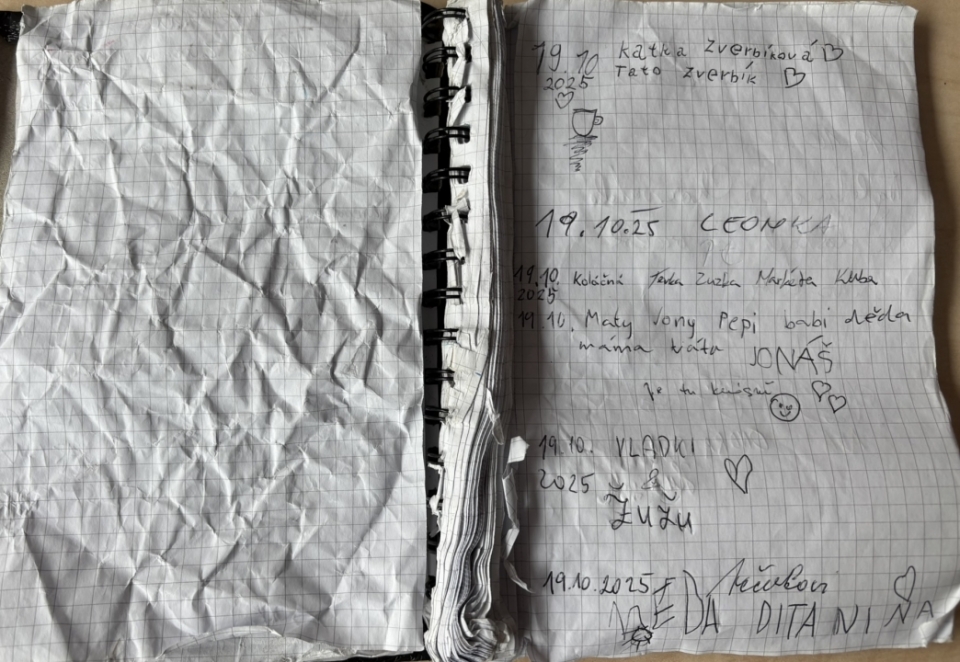 19.10 Katka Zverbíková
2025 Tato Zverbík
19.10.25 LEONKA
19.10. Zuzka Markéta Kuba
2025
19.10. Maty Jony Pepi babi děda
máma táta JONÁŠ
Je tu krásně
19.10. VLADKI
2025 &
ŽuŽu
19.10.2025
NEĎA DITA NINA